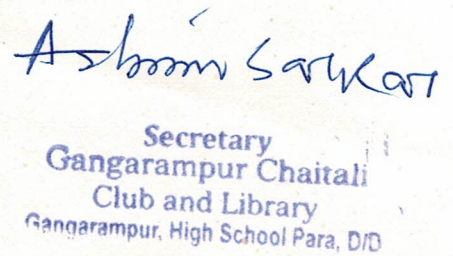 Ashim Sarkar
Secretary
Gangarampur Chaitali
Club and Library
Gangarampur, High School Para, D/D